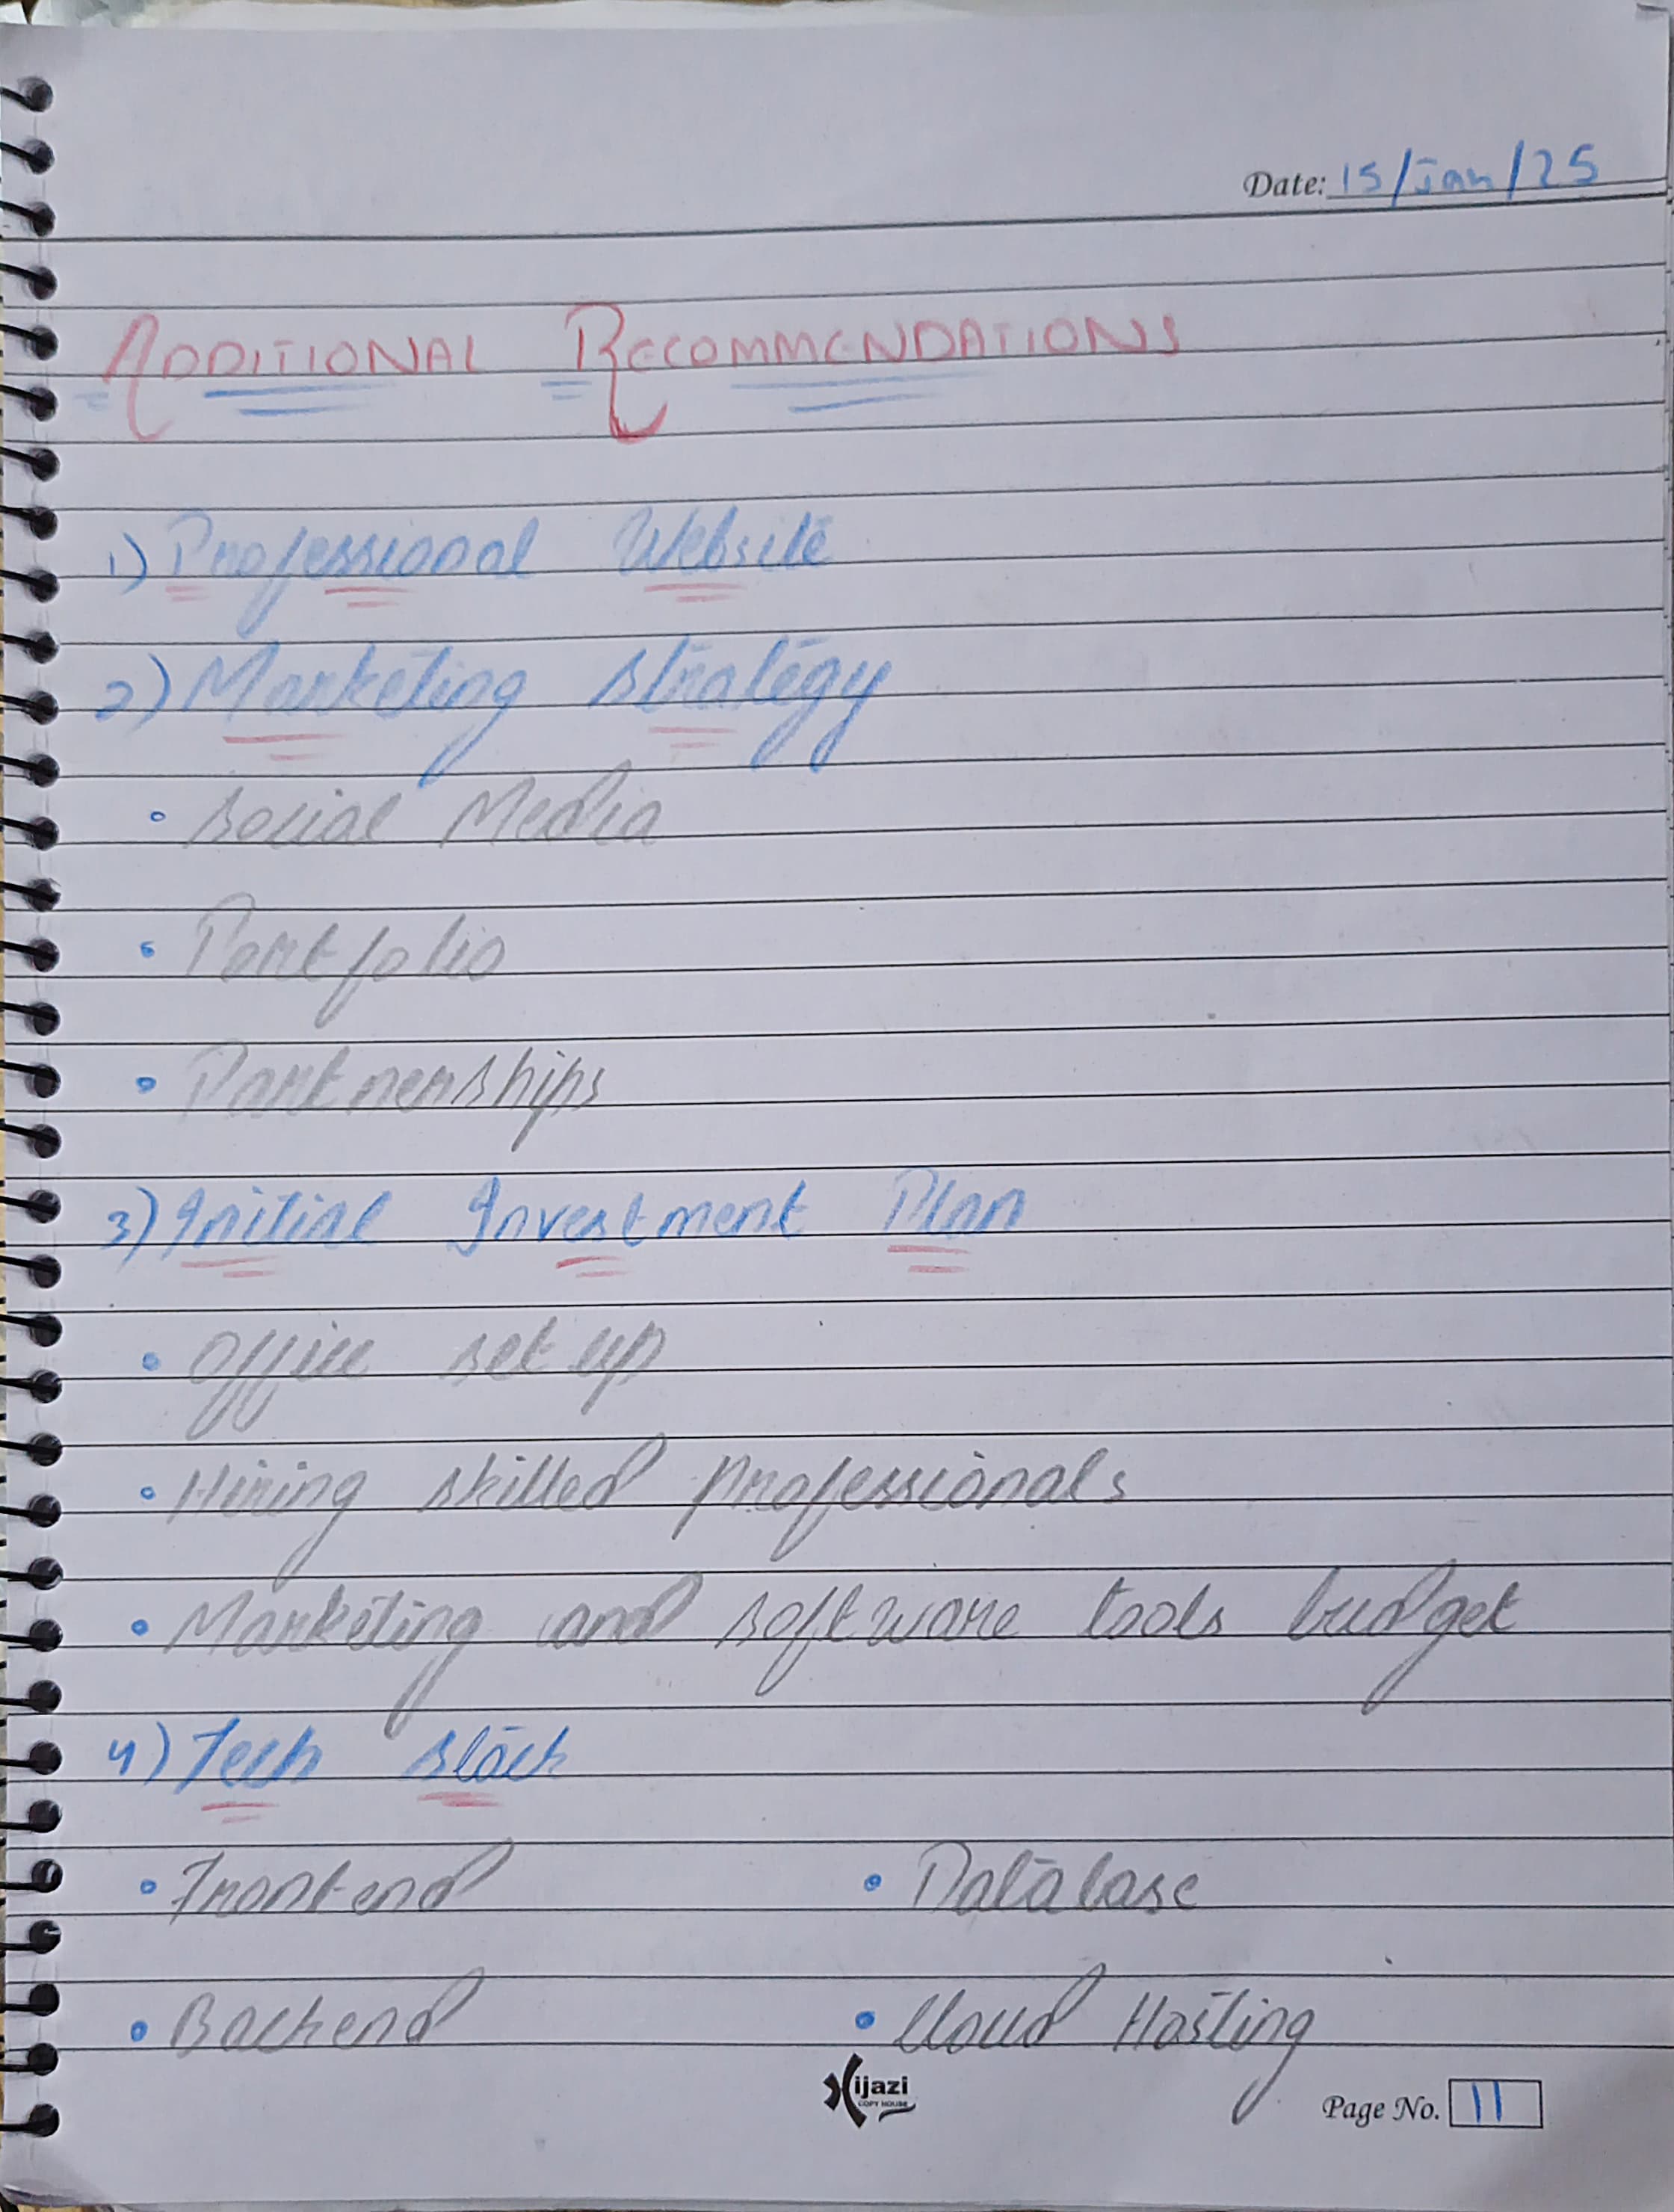 Date: 15/Jan/25
ADDITIONAL RECOMMENDATIONS
1) Professional Website
2) Marketing Strategy
• Social Media
• Portfolio
• Partnerships
3) Initial Investment Plan
• Office set up
• Hiring skilled professionals
• Marketing and software tools budget
4) Tech Stack
• Frontend • Database
• Backend • Cloud Hosting
Hijazi
COPY HOUSE
Page No. 11